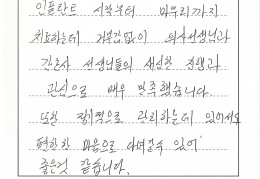 임플란트 시작부터 마무리까지
치료하는데 거부감없이 의사선생님과
간호사 선생님들의 세심한 진행과
관심으로 매우 만족했습니다.
또한 정기적으로 관리하는데 있어서도
편안한 마음으로 다녀갈수 있어
좋은것 같습니다.